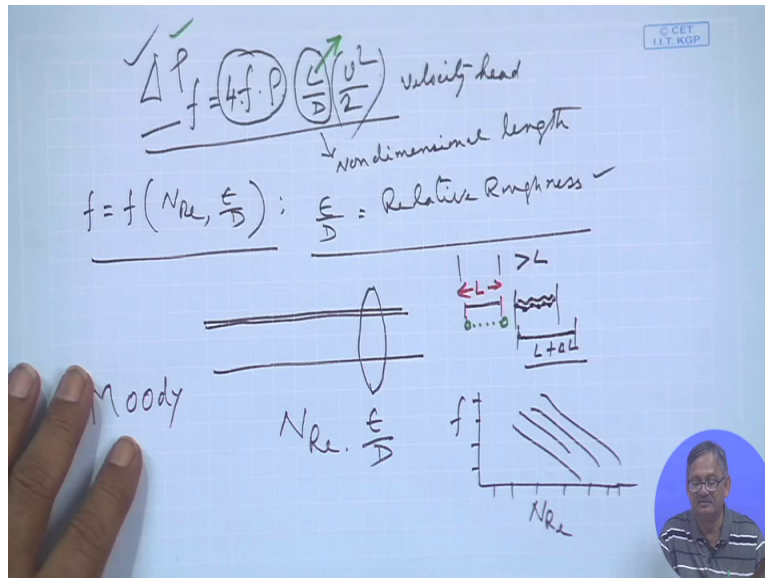 © CET
I.I.T. KGP
ΔP_f = 4.f.ρ (L/D) (υ²/2) velocity head
Nondimensional length
f = f(N_Re, ε/D) : ε/D = Relative Roughness
> L
L
L + ΔL
Moody
N_Re . ε/D
f
N_Re